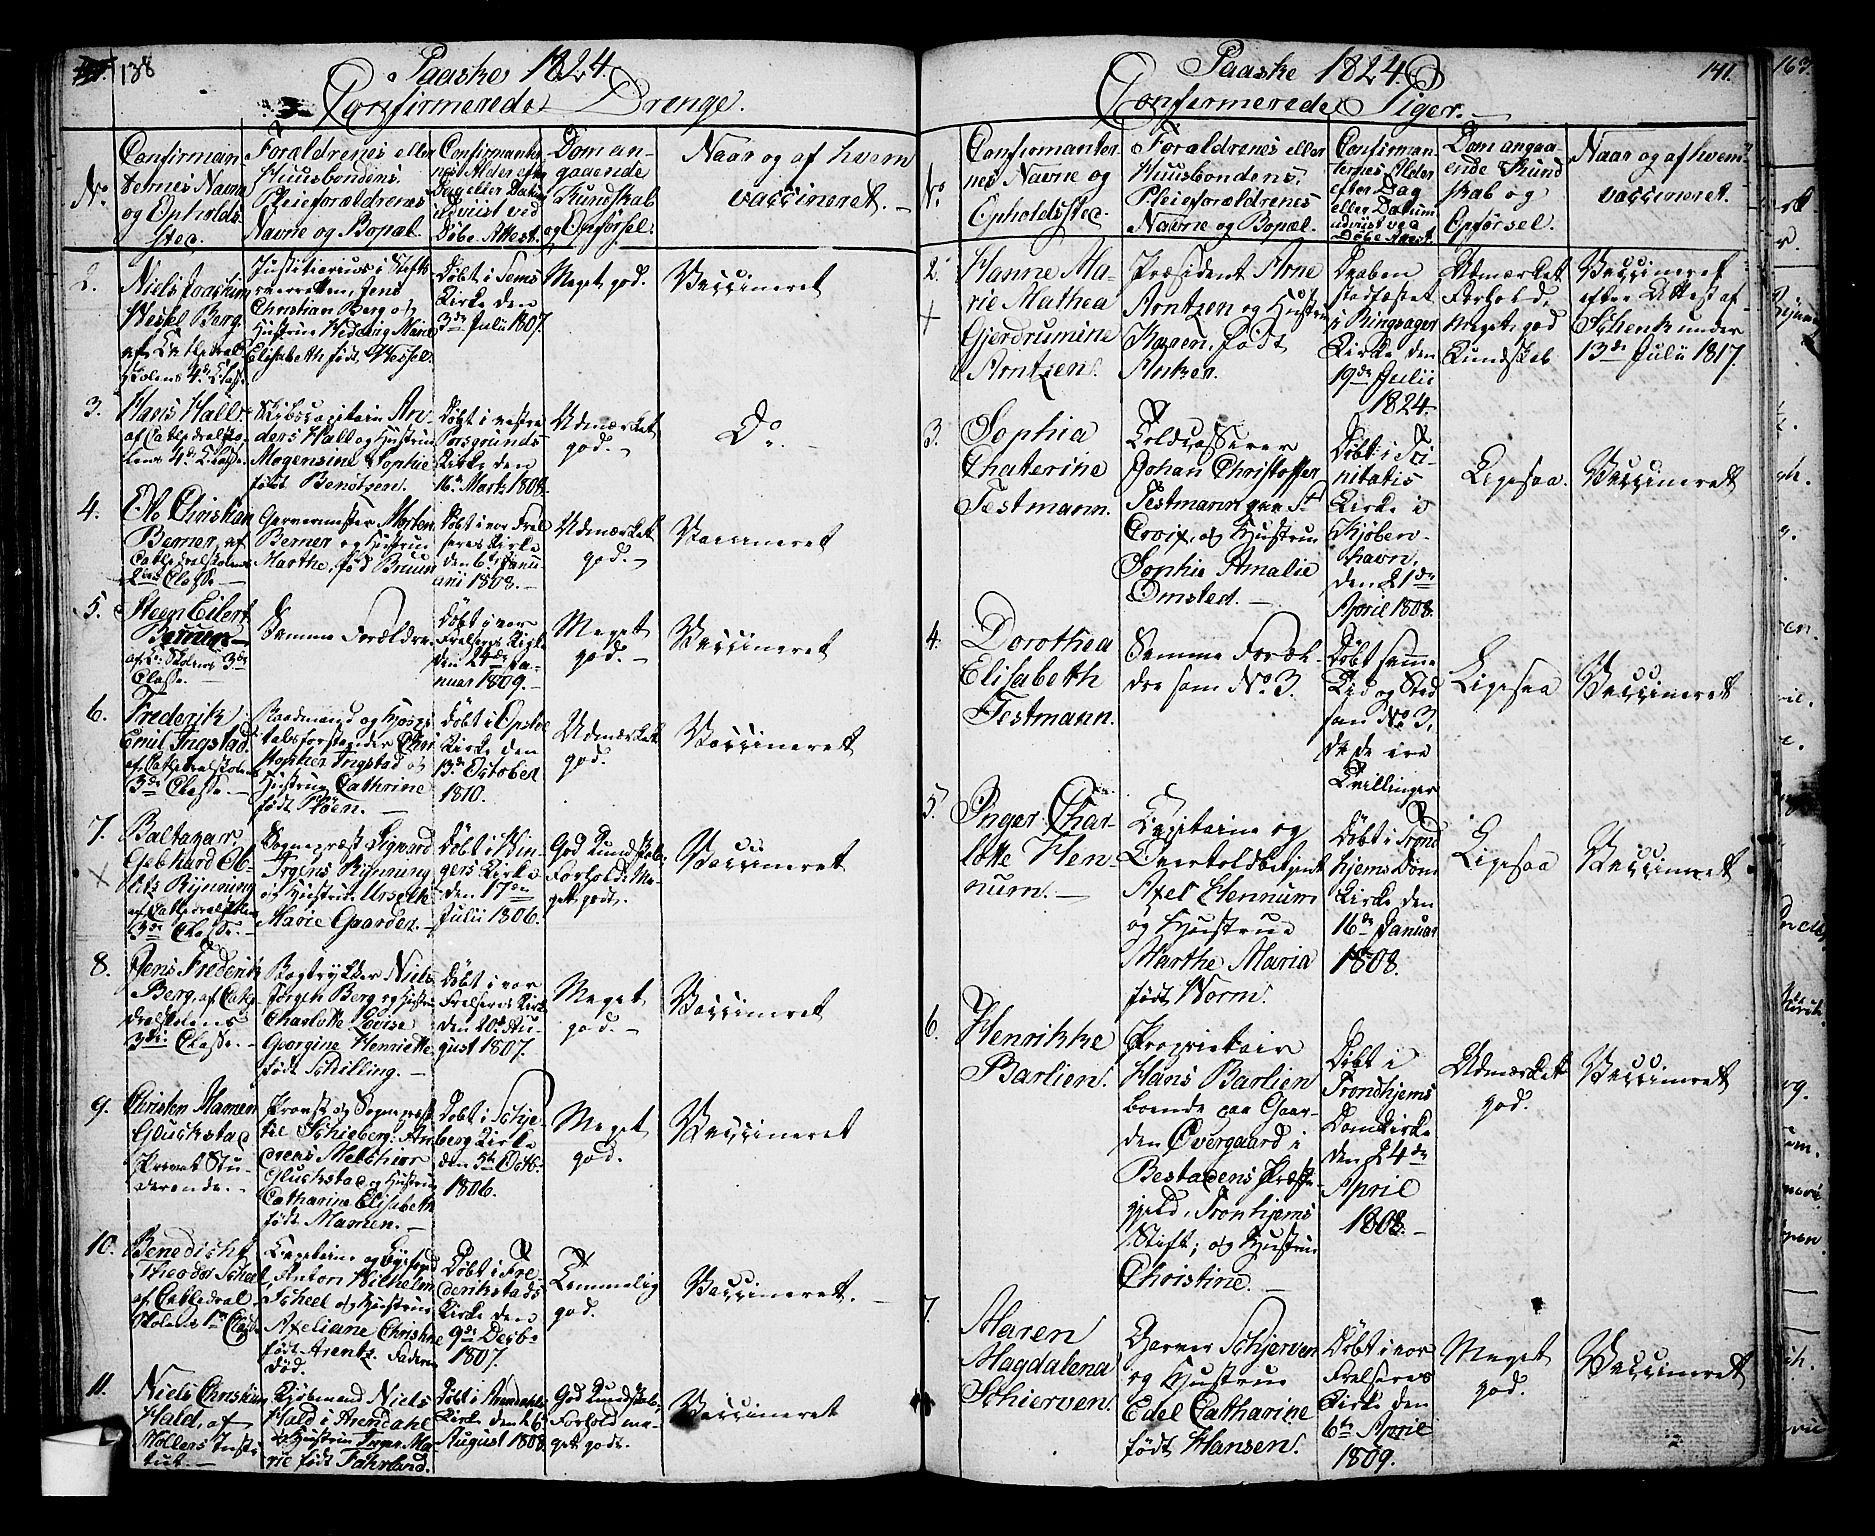 138
Paaske 1824.
Confirmerede Drenge.
No.
Confirman
ternes Navne
og Opholds
sted.
Forældrenes eller
Huusbondens,
Pleieforældrenes
Navne og Bopæl.
Confirmanter
nes Alder efter
Dag eller Datum
udviist ved
Døbe Attest.
Dom an-
gaaende
Kundskab
og Opførsel.
Naar og af hvem
vaccineret.
2.
Niels Joachim
Wessel Berg
af Cathedral
skolens 4de Classe
Justitiarius i Stifts
overretten, Jens
Christian Berg og
Hustrue Wedding Marie
Elisabeth født Wessel.
Døbt i Sems
Kirke den
3de Julii 1807.
Meget god.
Vaccineret
3.
Hans Hall
af Cathedralsko-
lens 4de Classe.
Skibscapitain An-
ders Hall og Hustrue
Mogensine Sophie
født Bentzen.
Døbt i vestre
Porsgrunds
Kirke den
16de Marts 1808.
Udmærket
god.
Do.
4.
Oto Christian
Berner, af
Cathedralskolens
Classe
Garvermester Morten
Berner og Hustrue
Marthe, fød Bruun
Døbt i vor Frel
sers Kirke
den 6te Janu
arii 1808.
Udmærket
god.
Vaccineret
5.
Steen Eilert
Berner
af C. Skolens 3de
Classe.
Samme Forældre.
Døbt i vor
Frelsers Kirke
den 24de Ja-
nuar 1809.
Meget
god.
Vaccineret
6.
Frederik
Emil Ingstad
af Cathedralskolens
3de Classe.
Raadmand og Hospi
talsforstander Chri
stopher Ingstad og
Hustrue Cathrine
født Pløen.
Døbt i Opsloe
Kirke den
13de October
1810.
Udmærket
god.
Vaccineret
7.
Baltazar
Gebhard Ob-
litz Rynning
af Cathedralskolens
3de Classe.
Sognepræst Sigvard
Irgens Rynning
og Hustrue Urseth
Marie Gaarder.
Døbt i Vin-
gers Kirke
den 17en
Julii 1806.
God Kundskab,
Forhold: Me-
get godt.
Vaccineret
8.
Jens Frederik
Berg, af Cathe-
dralskolens
3die Classe.
Bogtrykker Niels
Jørgen Berg og Hustrue
Charlotte Lovise
Georgine Henriette
født Schilling.
Døbt i vor
Frelsers Kirke
den 20de Au-
gust 1807.
Meget
god.
Vaccineret
9.
Christen Mamen
Gluckstad
Privat Stu-
derende.
Provst og Sognepræst
til Schieberg: An
dreas Melchior
Gluckstad og Hustrue
Catharine Elisabeth
født Mamen.
Døbt i Schje-
berg Kirke
den 5te Octb.
1806.
Meget
god.
Vaccineret
10.
Benedicht
Theodor Scheel,
af Cathedral
skolens 1ste Classe
Capitaine og Byefoged
Anton Wilhelm
Scheel og Hustrue
Axeliane Christine
født Arentz. Faderen
død.
Døbt i Fre-
derikstads
Kirke den
9de Decbr.
1807.
Temmelig
god.
Vaccineret.
11.
Niels Christian
Hald, af
Møllers Insti-
tut.
Kjøbmand Niels
Hald i Arendahl
og Hustrue Inger Ma-
rie født Fahrland.
Døbt i Arendahls
Kirke den 26
August 1808
God Kundskab,
Forhold me-
get godt.
Vaccineret
141.
Paaske 1824.
Confirmerede Piger.
No.
Confirmanter
nes Navne og
Opholdssted.
Forældrenes eller
Huusbondens,
Pleieforældrenes
Navne og Bopæl.
Confirman-
ternes Alder
efter Dag
eller Datum
udviist ved
Døbe Attest.
Dom angaa-
ende Kund
skab og
Opførsel.
Naar og af hvem
vaccineret.
2.
Hanne Ma-
rie Mathea
Gjerdrumine
Arntzen.
Præsident Arne
Arntzen og Hustrue
Karen, født
Anker.
Daaben
stadfæstet
i Ringsager
Kirke den
19de Julii
1824.
Udmærket
Forhold,
meget god
Kundskab
Vaccineret
efter Attest af
Schenk under
13de Julii 1817.
3.
Sophia
Chaterine
Testmann.
Toldcasserer
Johan Christoffer
Testmann paa St.
Croix, og Hustrue
Sophie Amalie
Omsted.
Døbt i Tri-
nitatis
Kirke i
Kjøben-
havn,
den 21de
April 1808.
Ligesaa.
Vaccineret
4.
Dorothea
Elisabeth
Testmann.
Samme Foræl-
dre som No. 3.
Døbt samme
Tid og Sted
som No. 3,
da de ere
Tvillinger
Ligesaa
Vaccineret
5.
Inger Char-
lotte Hen-
num.
Capitaine og
Overtoldbetjent
Axel Hennum
og Hustrue
Marthe Maria
født Worm.
Døbt i Trond
hjems Dom
Kirke den
16de Januar
1808.
Ligesaa
Vaccineret
6.
Henrikke
Barlien.
Proprietair
Hans Barlien
boende paa Gaar-
den Overgaard i
Bestadens Præste
gjeld, Tronhjems
Stift; og Hustrue
Christine.
Døbt i
Trondhjems
Domkirke
den 24de
April
1808.
Udmærket
god.
Vaccineret
7.
Maren
Magdalena
Schierven.
Garver Schjerven
og Hustrue
Edel Catharine
født Hansen.
Døbt i vor
Frelsers
Kirke den
6te April
1809.
Meget
god.
Vaccineret
163.